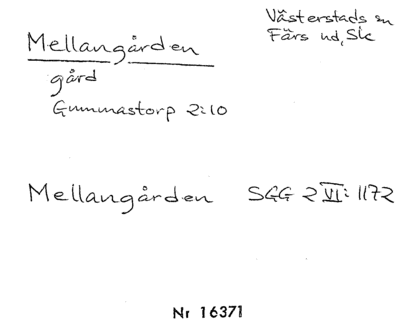 Västerstads sn
Färs hd, Sk
Mellangården
gård
Gummastorp 2:10
Mellangården SGG 2 VI: 1172
Nr 16371